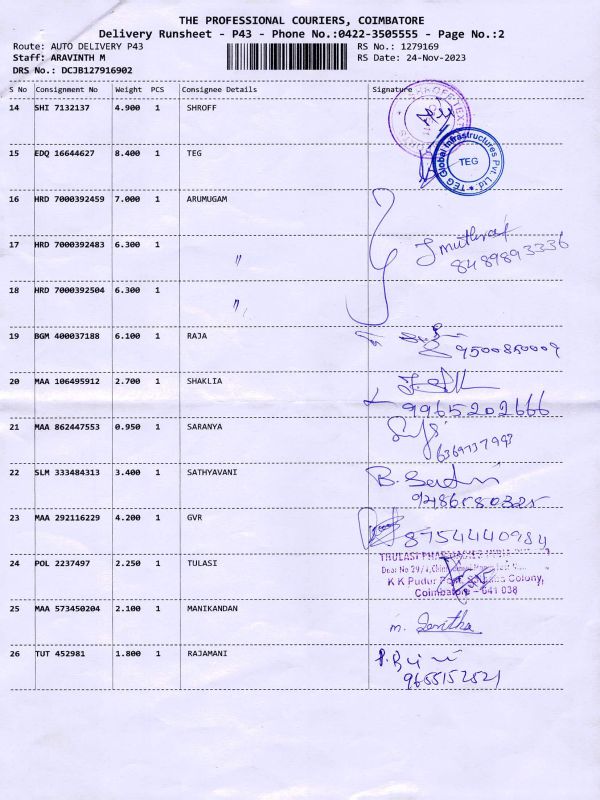 THE PROFESSIONAL COURIERS, COIMBATORE
Delivery Runsheet - P43 - Phone No.:0422-3505555 - Page No.:2
Route: AUTO DELIVERY P43 RS No.: 1279169
Staff: ARAVINTH M RS Date: 24-Nov-2023
DRS No.: DCJB127916902
S No Consignment No Weight PCS Consignee Details Signature
14 SHI 7132137 4.900 1 SHROFF
15 EDQ 16644627 8.400 1 TEG
TEG Global Infrastructures Pvt. Ltd.
TEG
16 HRD 7000392459 7.000 1 ARUMUGAM
17 HRD 7000392483 6.300 1 "
8489893336
18 HRD 7000392504 6.300 1 "
19 BGM 400037188 6.100 1 RAJA
9500850009
20 MAA 106495912 2.700 1 SHAKLIA
9965202666
21 MAA 862447553 0.950 1 SARANYA
22 SLM 333484313 3.400 1 SATHYAVANI
23 MAA 292116229 4.200 1 GVR
8754440984
24 POL 2237497 2.250 1 TULASI
K K Pudur Colony,
Coimbatore - 641 038
25 MAA 573450204 2.100 1 MANIKANDAN
m.
26 TUT 452981 1.800 1 RAJAMANI
9655152521